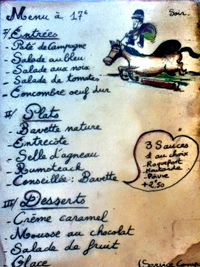 Menu à 17€
Soir.
I/ Entrées
- Paté de Campagne
- Salade au bleu
- Salade aux noix
- Salade de tomates
- Concombre oeuf dur
II/ Plats
- Bavette nature
- Entrecote
- Selle d'agneau
- Rumsteack
- Conseillée: Bavette
3 Sauces
1 au choix
Roquefort
Moutarde
Poivre
+2€50
III/ Desserts
- Crème caramel
- Mousse au chocolat
- Salade de fruit
- Glace
(Service Comp